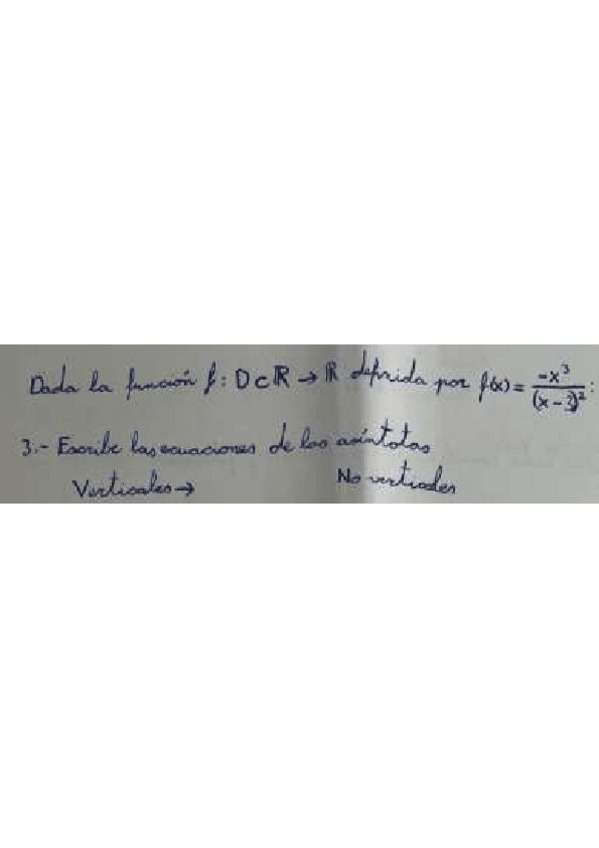 Dada la función f: D⊂ℝ → ℝ definida por f(x) = -x³/(x - )²:
3.- Escribe las ecuaciones de las asíntotas
Verticales → No verticales